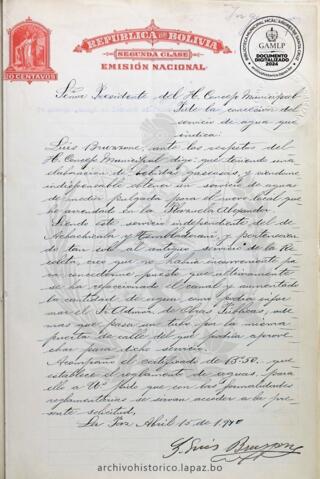 REPUBLICA DE BOLIVIA
SEGUNDA CLASE
EMISIÓN NACIONAL
CENTAVOS
GAMLP
DOCUMENTO
DIGITALIZADO
2024
Señor Presidente del H. Concejo Municipal
Pide la conexión del
servicio de agua que
indica.
Luis Bruzzone, ante los respetos del
H. Concejo Municipal digo: que teniendo una
elaboracion de bebidas gaseosas, y siendome
indispensable obtener un servicio de aguas
de media pulgada para el nuevo local que
he arrendado en la
Siendo este servicio independiente del de
y perteneciendo
tan solo al antiguo servicio de la Re
creo que no habrá inconveniente pa
ra concederme puesto que ultimamente
se ha refaccionado el canal y aumentado
la cantidad de agua como podrá infor
mar el Sr. Admor. de Obras Públicas, ade
mas que pasa un tubo por la misma
puerta de calle del que podria aprove
char para dicho servicio.
Acompaño el certificado de B 50. que
establece el reglamento de aguas, para
ello a Ud. pide que con las formalidades
reglamentarias se sirvan acceder a la pre
sente solicitud.
La Paz Abril 15 de 1910
Luis Bruzzone
archivohistorico.lapaz.bo